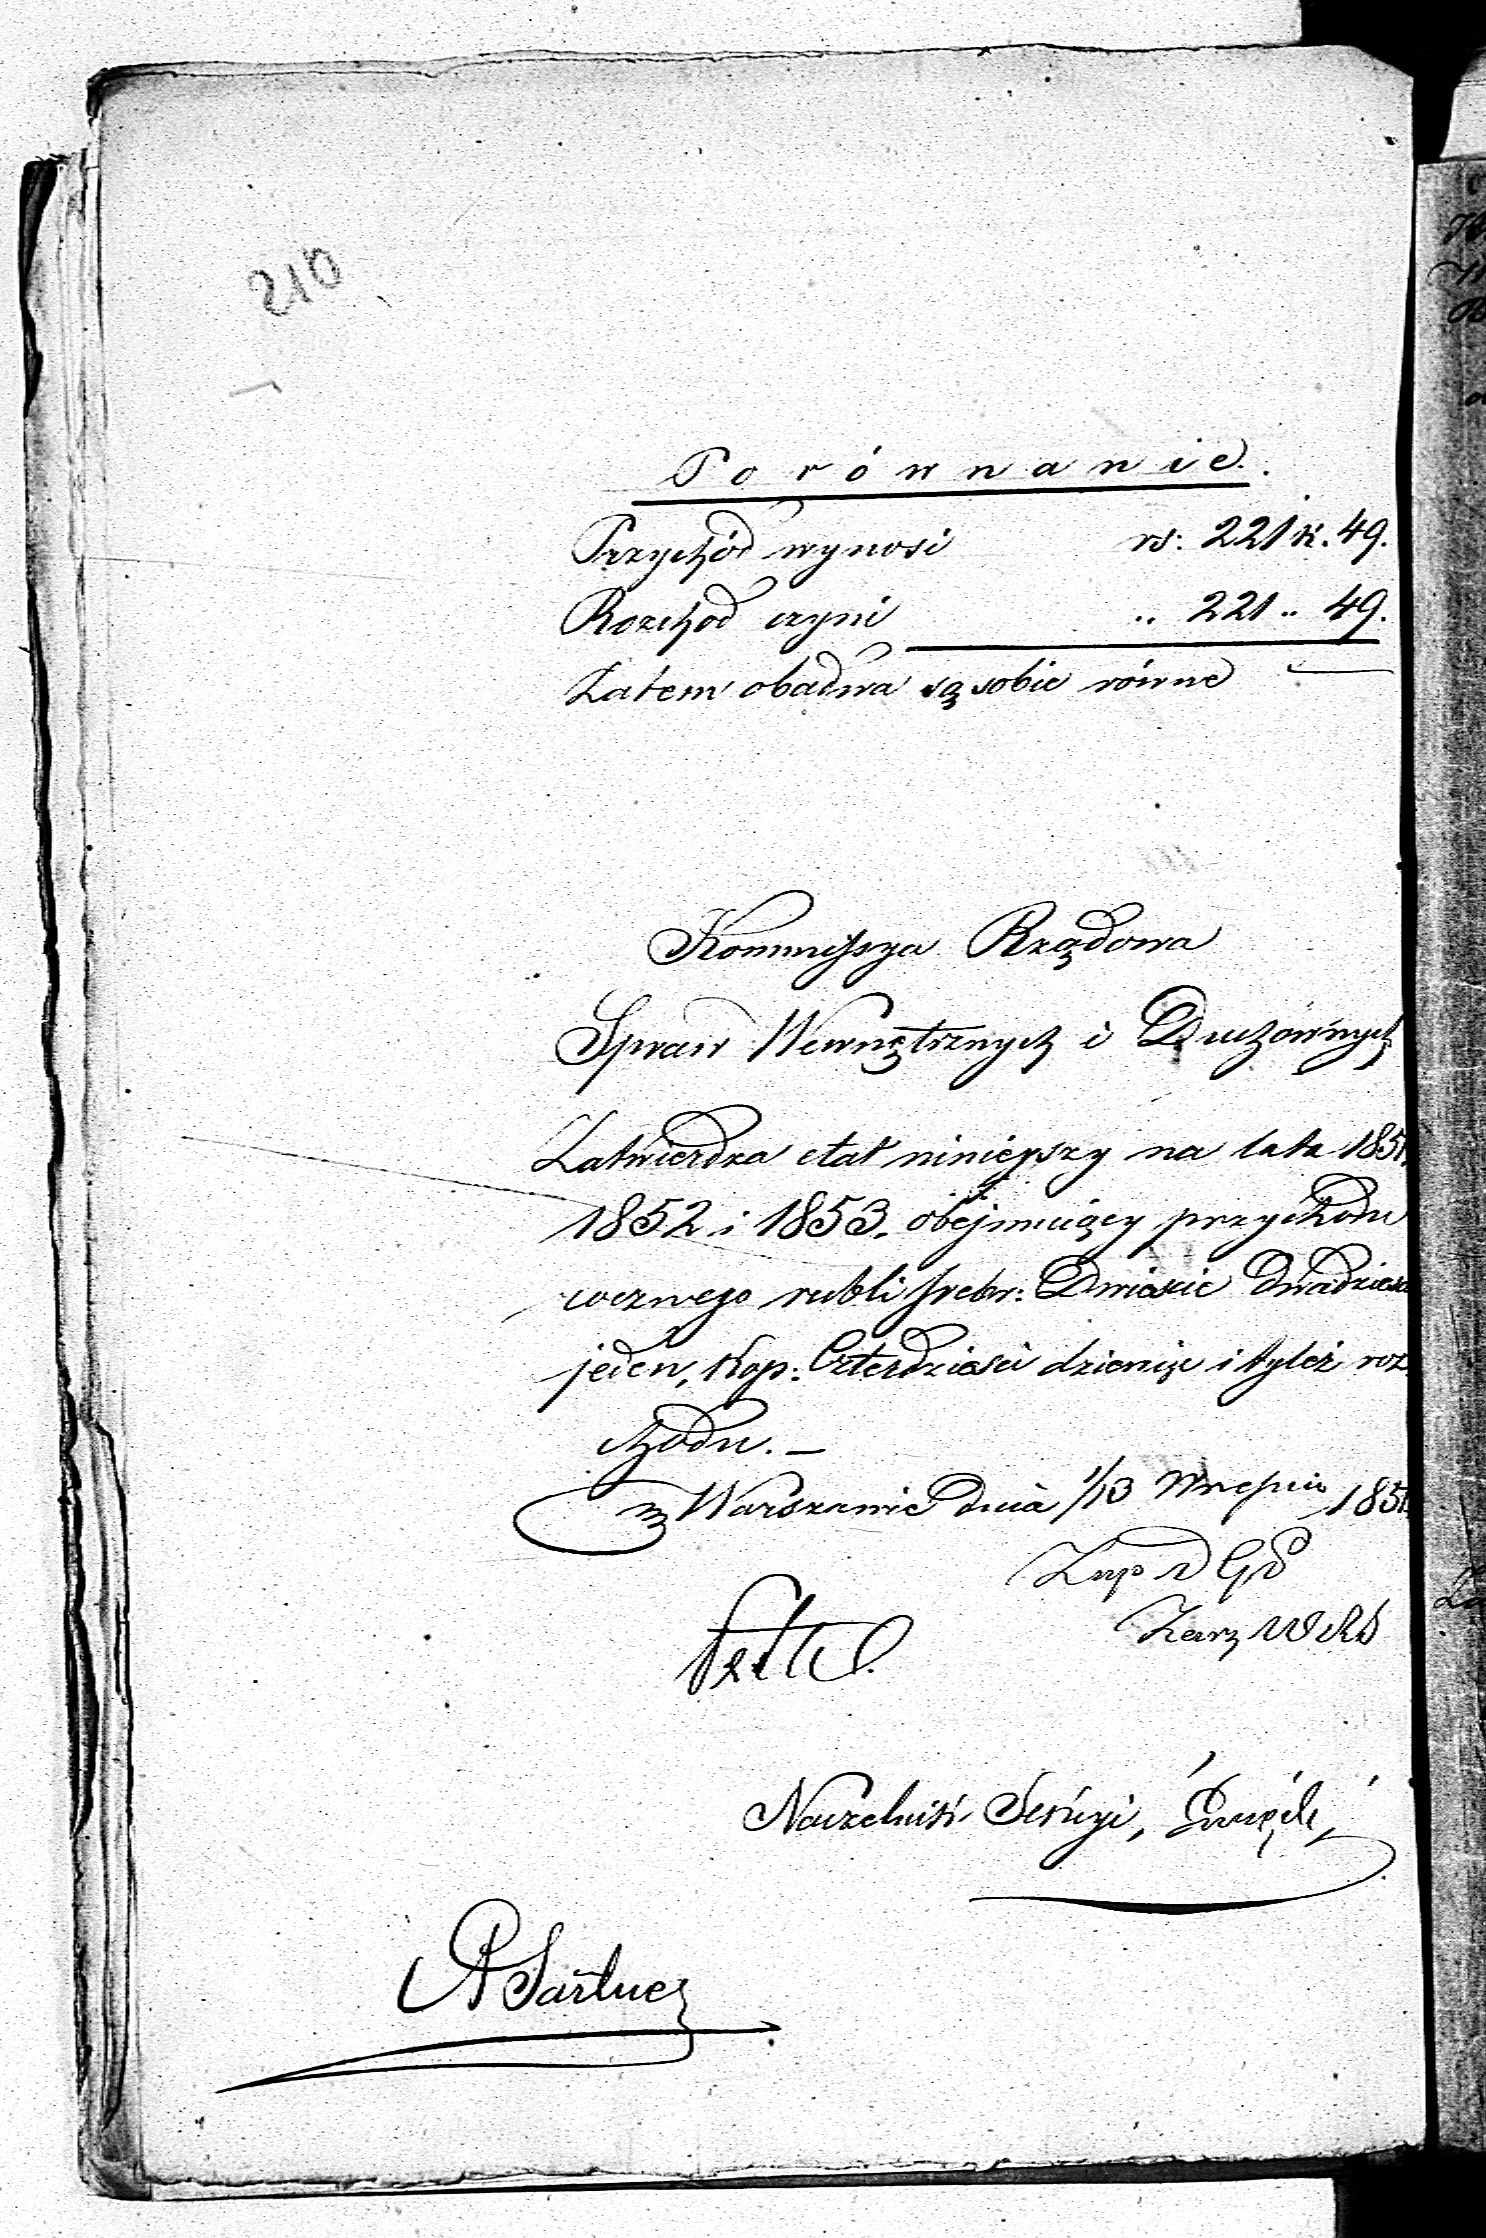 210
Porównanie.
Przychód wynosi rs: 221 k. 49.
Rozchod czyni „ 221 „ 49.
Zatem obadwa są sobie równe —
Kommissya Rządowa
Spraw Wewnętrznych i Duchownych
Zatwierdza etat niniejszy na lata 1851.
1852 i 1853. obejmuiący przychodu
rocznego rubli srebr: Dwieście dwadzieścia
jeden, kop: Czterdzieści dziewięć i tyleż roz
chodu. —
w Warszawie dnia 1/13 Września 1851
Naczelnik Sekcyi,